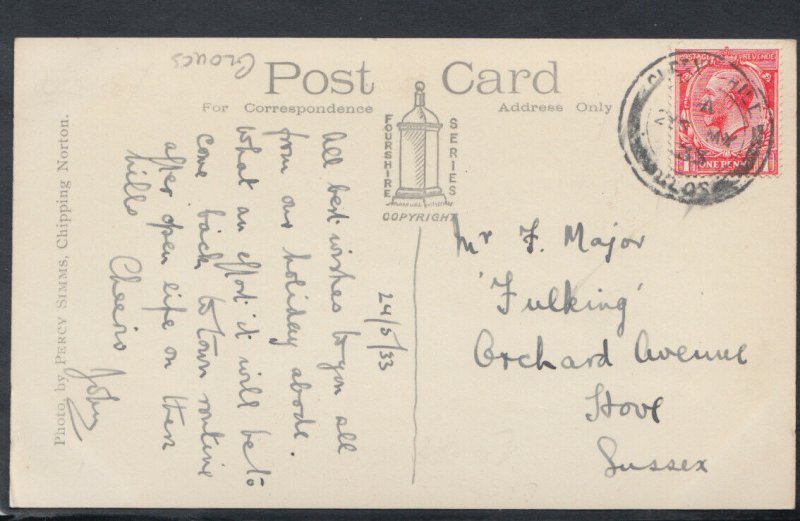 Groves
Post Card
For Correspondence
Address Only
FOURSHIRE
SERIES
COPYRIGHT
Photo, by PERCY SIMMS, Chipping Norton.
24/5/33
All best wishes to you all
from our holiday abode.
What an effort it will be to
come back to town routine
after open life on these
hills
Cheerio
John
Mr F. Major
'Fulking'
Orchard Avenue
Hove
Sussex
POSTAGE REVENUE
ONE PENNY
HILL
MY
33
GLOS